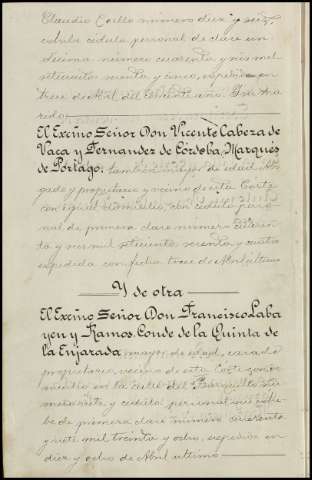 Claudio Coello número diez y seis,
exhibe cédula personal de clase un
décima número cuarenta y seis mil
setecientos setenta y cinco, expedida en
trece de Abril del corriente año.
El Excmo Señor Don Vicente Cabeza de
Vaca y Fernandez de Córdoba, Marqués
de Portago, también mayor de edad,
y propietario y vecino de esta Corte
con igual domicilio, con cédula perso
nal de primera clase número cuaren
ta y seis mil setecientos setenta y cuatro
expedida con fecha trece de Abril último
Y de otra
El Excmo Señor Don Francisco Laba
yen y Ramos, Conde de la Quinta de
la Enjarada mayor de edad, casado
propietario, vecino de esta Corte con do
micilio en la calle del Barquillo
y cédula personal que exhi
be de primera clase número cuarenta
y siete mil treinta y ocho, expedida en
diez y ocho de Abril último